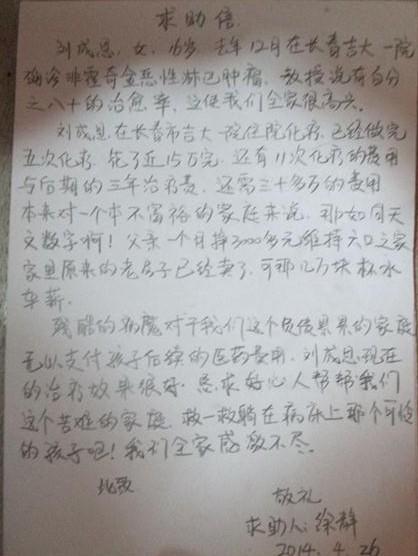 求助信
刘成恩，女，16岁，去年12月在长春吉大一院
确诊非霍奇金恶性淋巴肿瘤，教授说有百分
之八十的治愈率，这使我们全家很高兴。
刘成恩在长春市吉大一院住院化疗，已经做完
五次化疗，花了近15万元，还有11次化疗的费用
与后期的三年治疗费，还需三十多万的费用
本来对一个本不富裕的家庭来说，那如同天
文数字啊！父亲一个月挣3000多元维持六口之家
家里原来的老房子已经卖了，可那几万块杯水
车薪。
残酷的病魔对于我们这个负债累累的家庭
无以支付孩子后续的医药费用，刘成恩现在
的治疗效果很好，恳求好心人帮帮我们
这个苦难的家庭，救一救躺在病床上那个可怜
的孩子吧！我们全家感激不尽。
此致
敬礼
求助人：徐静
2014.4.26